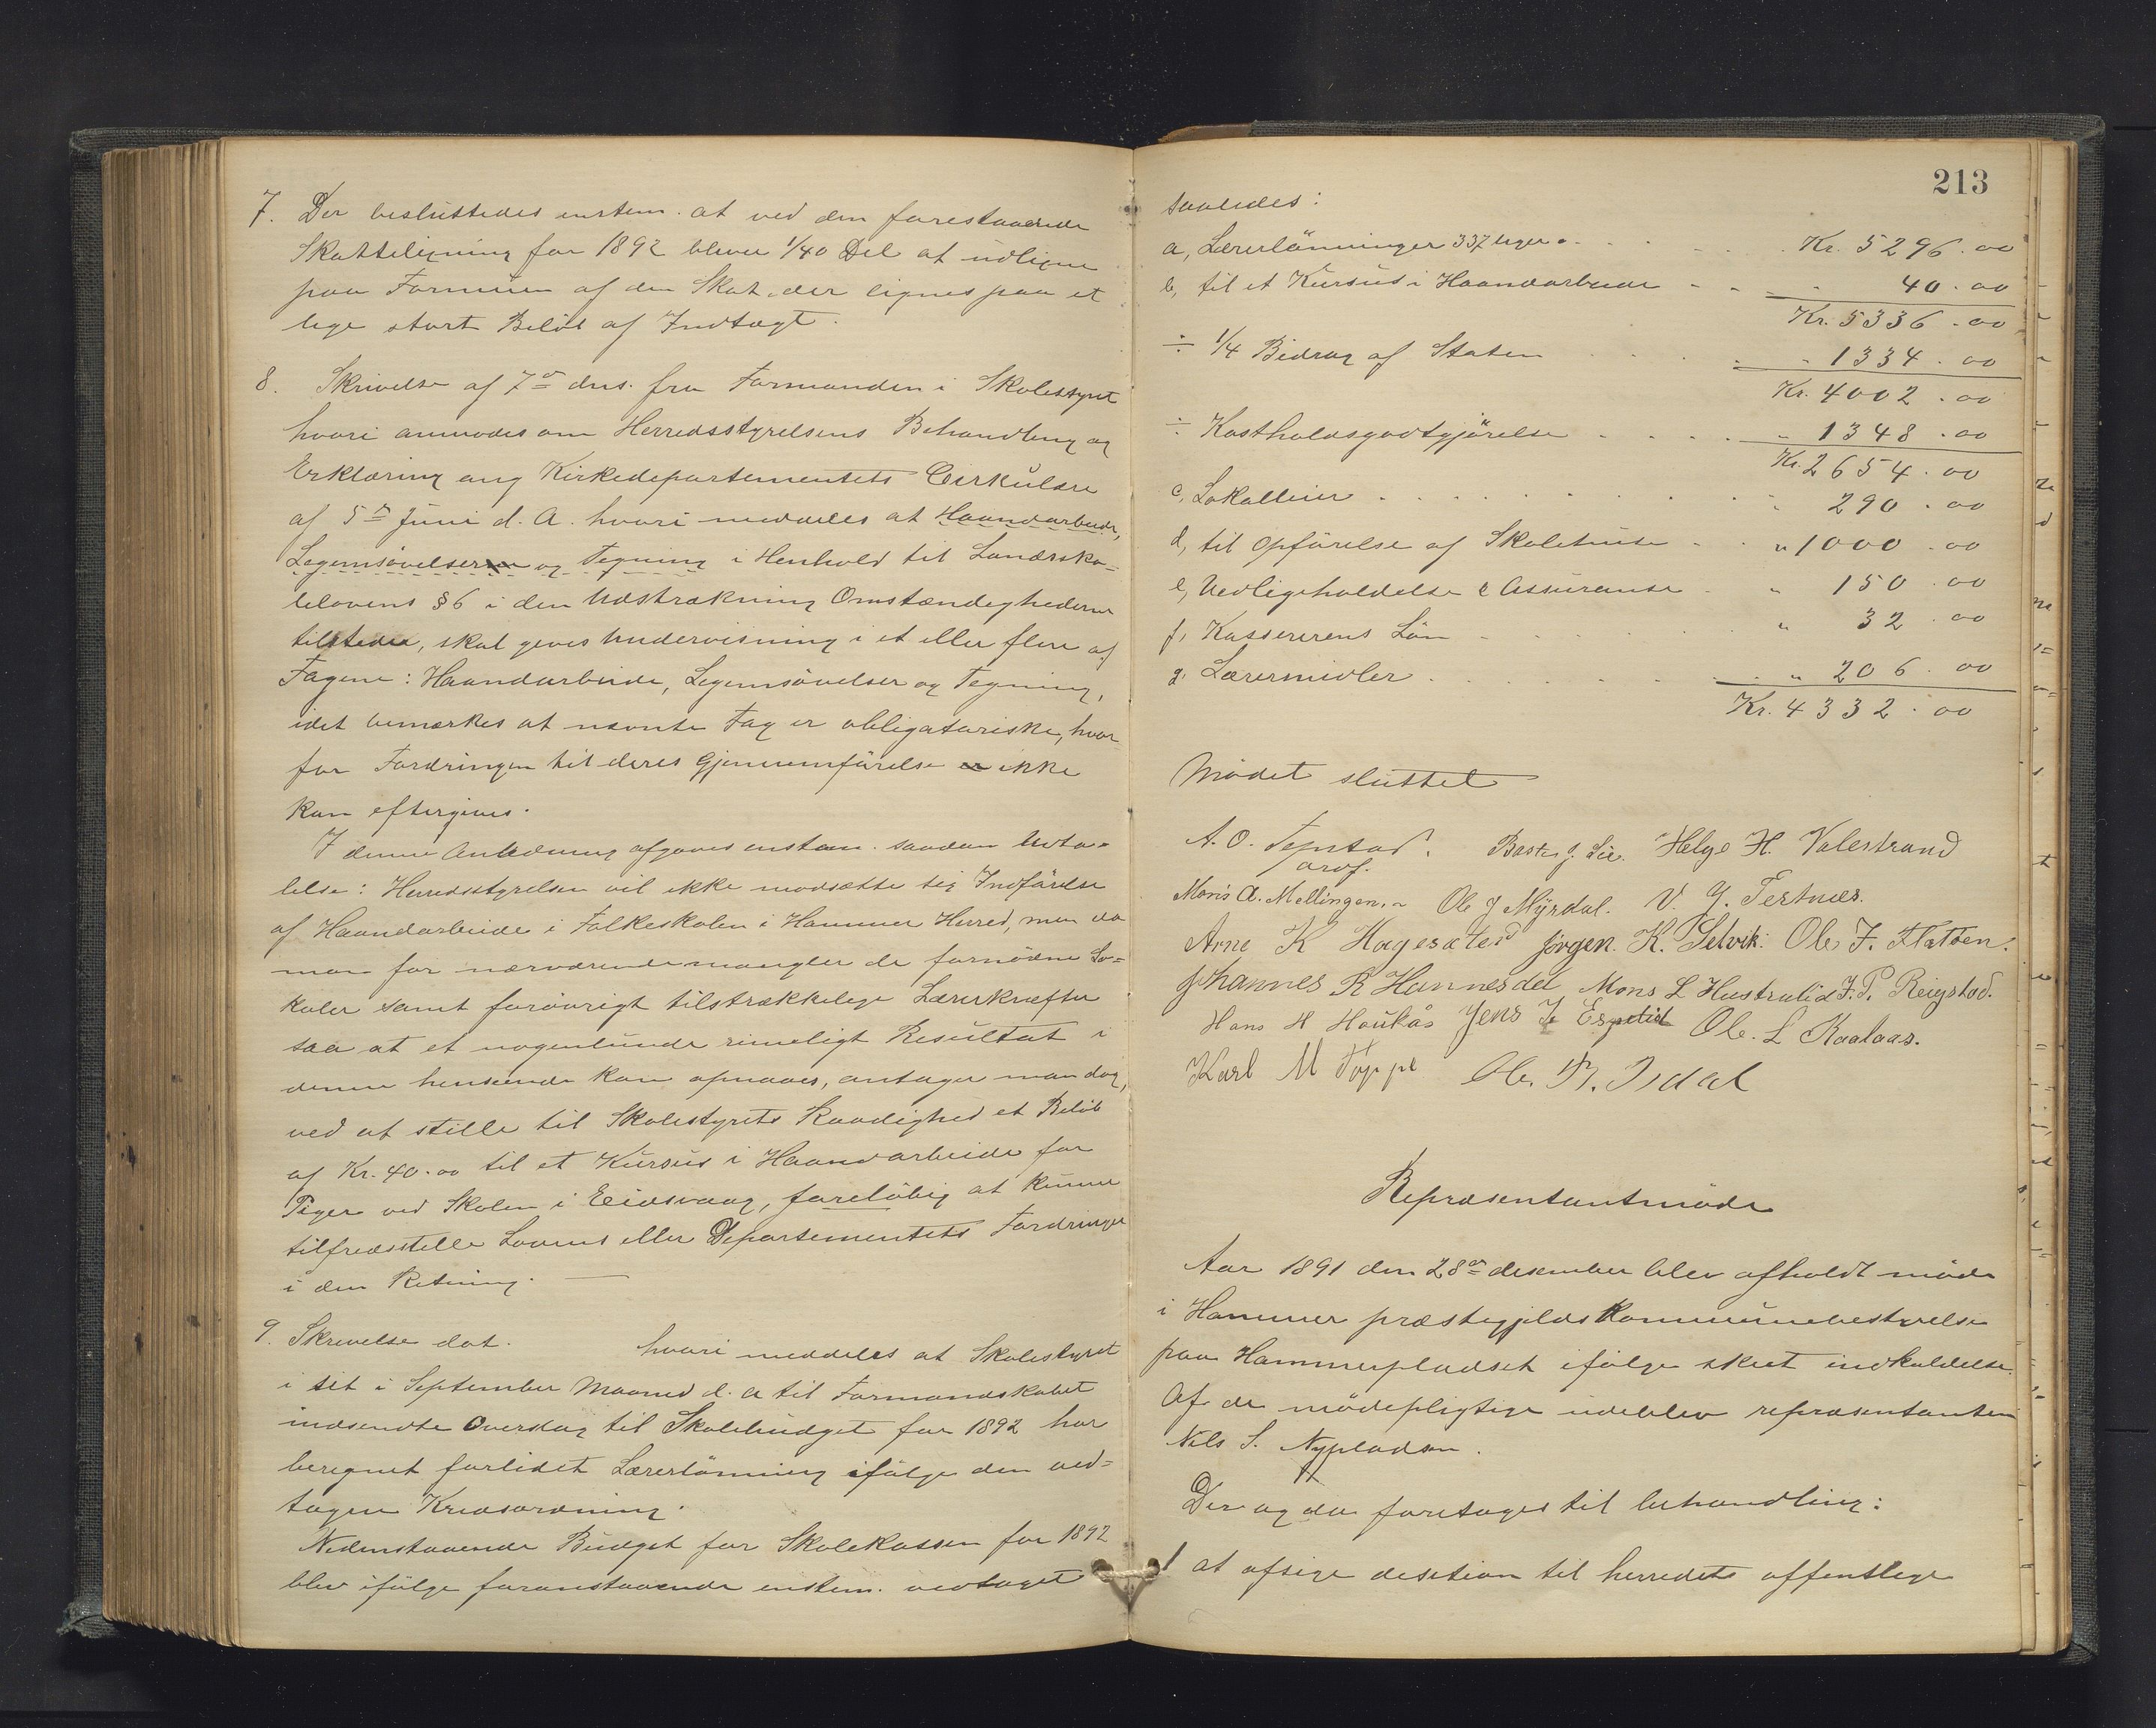 7. Der besluttedes enstem. at ved den forestaaende
Skatteligning for 1892 bliver 1/40 Del at udligne
paa Formuen af den Skat, der lignes paa et
lige stort Beløb af Indtægt.
8. Skrivelse af 7de dns. fra Formanden i Skolestyret
hvori anmodes om Herredsstyrelsens Behandling og
Erklæring ang Kirkedepartementets Cirkulære
af 5te Juni d. A. hvori meddeles at Haandarbeide,
Legemsøvelser og Tegning i Henhold til Landssko-
lelovens § 6 i den Udstrækning Omstændighederne
tilsteder, skal gives Undervisning i et eller flere af
Fagene: Haandarbeide, Legemsøvelser og Tegning,
idet bemærkes at nævnte Fag er obligatoriske, hvor-
for Fordringen til deres Gjennemførelse ikke
kan eftergives.
I denne Anledning afgaves enstem. saadan Udta-
lelse: Herredsstyrelsen vil ikke modsætte sig Indførelse
af Haandarbeide i Folkeskolen i Hammer Herred, men da
man for nærværende mangler de fornødne Lo-
kaler samt forøvrigt tilstrækkelige Lærerkræfter
saa at et nogenlunde rimeligt Resultat i
denne henseende kan opnaaes, antager man dog,
ved at stille til Skolestyrets Raadighed et Beløb
af Kr. 40.00 til et Kursus i Haandarbeide for
Piger ved Skolen i Eidsvaag, foreløbig at kunne
tilfredsstille Lovens eller Departementets Fordringer
i den Retning.
9. Skrivelse dat. hvori meddeles at Skolestyret
i sit i September Maaned d. A til Formandskabet
indsendte Overslag til Skolebudget for 1892 har
beregnet forlidet Lærerlønning ifølge den ved-
tagne Kredsordning.
Nedenstaaende Budget for Skolekassen for 1892
blev ifølge foranstaaende enstem. vedtaget
213
saaledes:
a, Lærerlønninger 337 uger a . . . Kr. 5296.00
b, til et Kursus i Haandarbeide - - - 40.00
Kr. 5336.00
÷ 1/4 Bidrag af Staten . . . - " 1334.00
Kr. 4002.00
÷ Kostholdsgodtgjørelse . . . . - " 1348.00
Kr. 2654.00
c, Lokalleier . . . . . . . " 290.00
d, til Opførelse af Skolehuse - . " 1000.00
e, Vedligeholdelse & Assuranse . " 150.00
f, Kassererens Løn - . . . . " 32.00
g, Læremidler . . . . . . " 206.00
Kr. 4332.00
Mødet sluttet
A. O. Tepstad. Baste J. Lie. Helge H. Valestrand
ordf.
Mons A. Mellingen. Ole J Myrdal. V. G. Tertnæs.
Arne K Hagesæter Jørgen K. Selvik. Ole J. Flatøen.
Johannes R Hannesdal Mons L Hustrulid J. P. Reigstad.
Hans H Haukås Jens J Espelid Ole L Kaalaas.
Karl M Toppe Ole Th. Isdal
Repræsentantmøde
Aar 1891 den 28de desember blev afholdt møde
i Hammer præstegjelds Kommunebestyrelse
paa Hammerpladset ifølge skeet indkaldelse.
Af de mødepligtige udeblev repræsentanten
Nils S. Nypladsen.
Der og da foretages til behandling:
1 at afsige desition til herredets offentlige